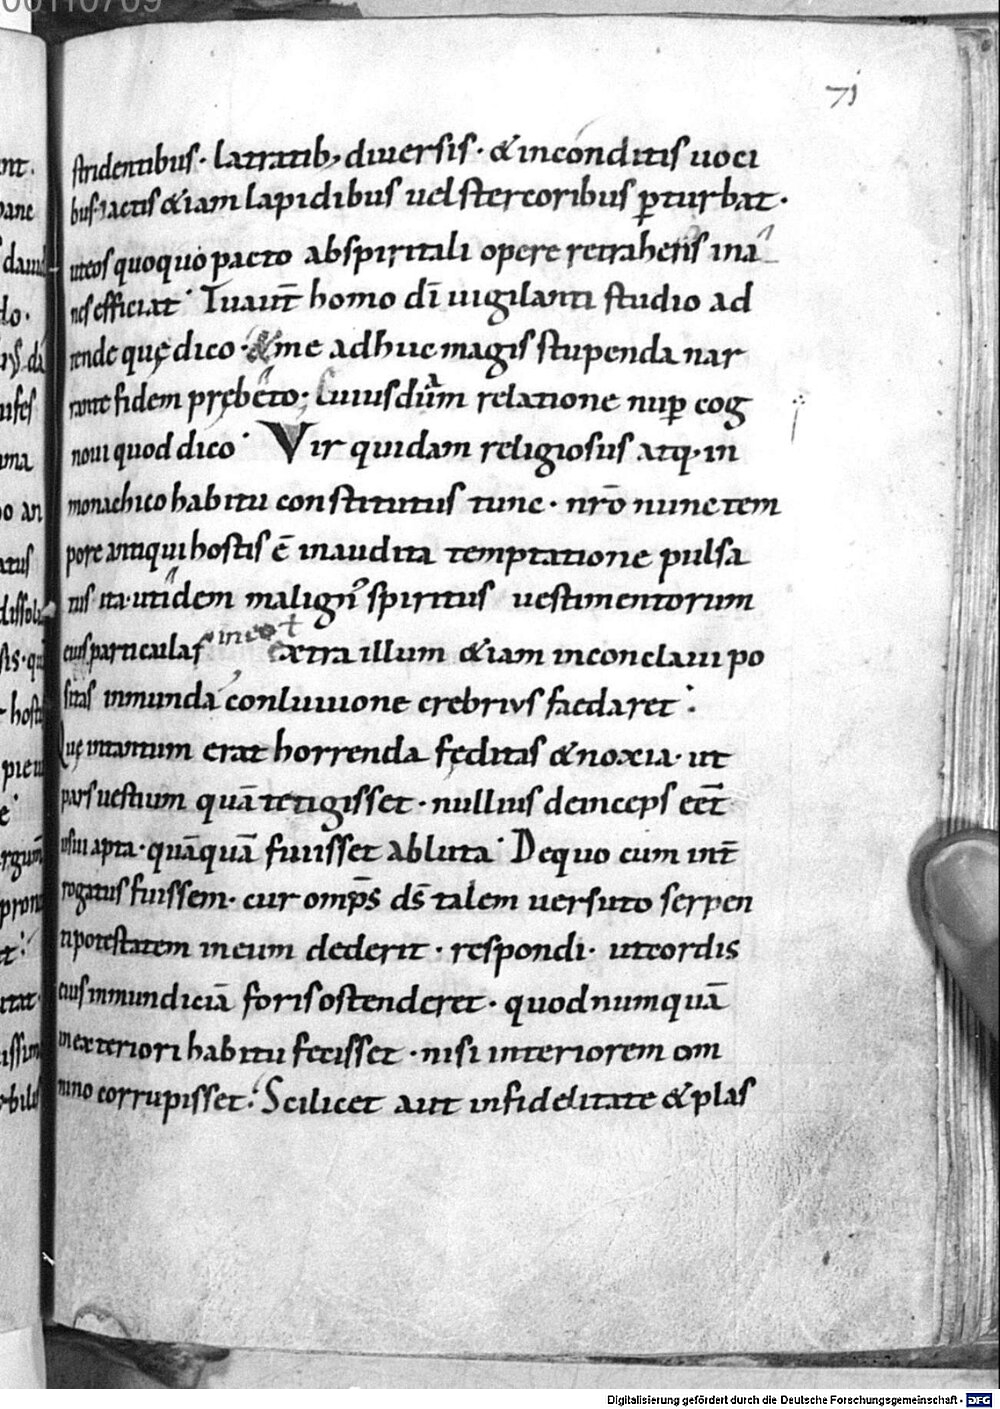 71
stridentibus· latratib; diuersis· & inconditis uoci
bus· iactis &iam lapidibus uel stercoribus ꝑturbat·
ut eos quoquo pacto ab spiritali opere retrahens ina
nes efficiat· Tu aut̄ homo dī uigilanti studio ad
tende quę dico· & me adhuc magis stupenda nar
rante fidem prębeto; Cuiusdam relatione nuꝑ cog
noui quod dico· Vir quidam religiosus atq; in
monachico habitu constitutus tunc· nr̄o nunc tem
pore antiqui hostis ē inaudita temptatione pulsa
tus ita· ut idem malign᾽ spiritus uestimentorum
eius particulas in eo & extra illum &iam in conclaui po
sitas inmunda conluuione crebrius faedaret·
Quę intantum erat horrenda fęditas & noxia· ut
pars uestium quā tetigisset· nullius deinceps eēt
usui apta· quāquā fuisset abluta· De quo cum int̄
rogatus fuissem· cur omp̄s ds̄ talem uersuto serpen
ti potestatem in eum dederit· respondi· ut cordis
eius inmundiciā foris ostenderet· quod numquā
in exteriori habitu fecisset· nisi interiorem om
nino corrupisset· Scilicet aut infidelitate & plas
Digitalisierung gefördert durch die Deutsche Forschungsgemeinschaft - DFG